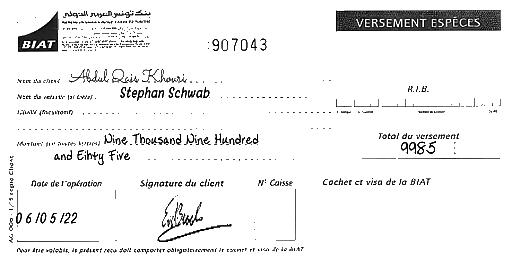 بنك تونس العربي الدولي
BIAT
907043
VERSEMENT ESPÈCES
Nom du client Abdul Qais Khouri
Nom du verseur (si tiers) Stephan Schwab
R.I.B.
Libellé (facultatif)
Montant (en toutes lettres) Nine Thousand Nine Hundred
and Eihty Five
Total du versement
9985
Date de l'opération
Signature du client
N° Caisse
Cachet et visa de la BIAT
06/05/22
Pour être valable, le présent reçu doit comporter obligatoirement le cachet et visa de la BIAT
copie Client